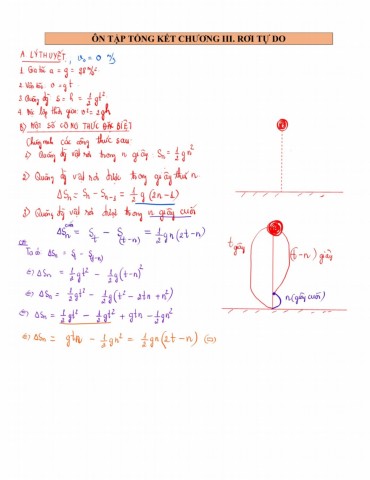 ÔN TẬP TỔNG KẾT CHƯƠNG III. RƠI TỰ DO
A. LÝ THUYẾT, v₀ = 0 m/s
1. Gia tốc a = g =
2. Vận tốc: v = gt
3. Quãng đg s = h = 1/2 gt²
4. độc lập thời gian: v² = 2gh
B) MỘT SỐ CÔNG THỨC ĐẶC BIỆT
Chứng minh các công thức sau:
1) Quãng đg vật rơi trong n giây Sₙ = 1/2 gn²
2) Quãng đg vật rơi được trong giây thứ n
ΔSₙ = Sₙ - Sₙ₋₁ = 1/2 g (2n-1)
3) Quãng đg vật rơi được trong n giây cuối
ΔSₙ cuối = Sₜ - S(t-n) = 1/2 gn(2t-n)
cm
Ta có: ΔSₙ = Sₜ - S(t-n)
⇔ ΔSₙ = 1/2 gt² - 1/2 g(t-n)²
⇔ ΔSₙ = 1/2 gt² - 1/2 g(t² - 2tn + n²)
⇔ ΔSₙ = 1/2 gt² - 1/2 gt² + gtn - 1/2 gn²
⇔ ΔSₙ = gtn - 1/2 gn² = 1/2 gn(2t-n)
t giây
(t-n) giây
n (giây cuối)